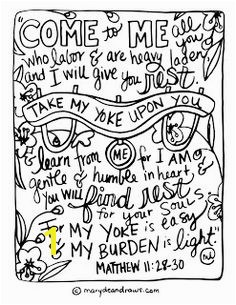 "COME to ME all you
who labor & are heavy laden,
and I will give you rest.
TAKE MY YOKE UPON YOU
& learn from ME for I AM
gentle & humble in heart, &
YOU WILL find rest
for your souls.
For MY YOKE is easy
& MY BURDEN is light."
MATTHEW 11:28-30
© marydeandraws.com